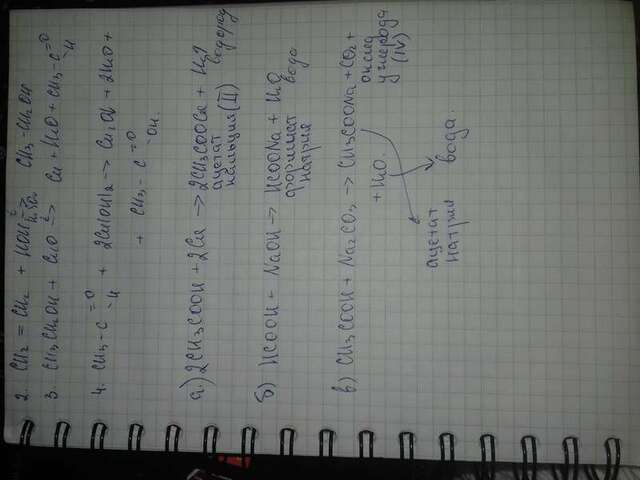 2. CH2 = CH2 + HOH → CH3 - CH2OH
3. CH3CH2OH + CuO → Cu + H2O + CH3 - C =O -H
4. CH3 - C =O -H + 2Cu(OH)2 → Cu2O↓ + 2H2O +
+ CH3 - C =O -OH.
а) 2CH3COOH + 2Ca → 2CH3COOCa + H2↑
ацетат кальция (II) водород
б) HCOOH + NaOH → HCOONa + H2O
формиат натрия вода
в) CH3COOH + Na2CO3 → CH3COONa + CO2 +
оксид углерода (IV)
+ H2O.
ацетат натрия вода.